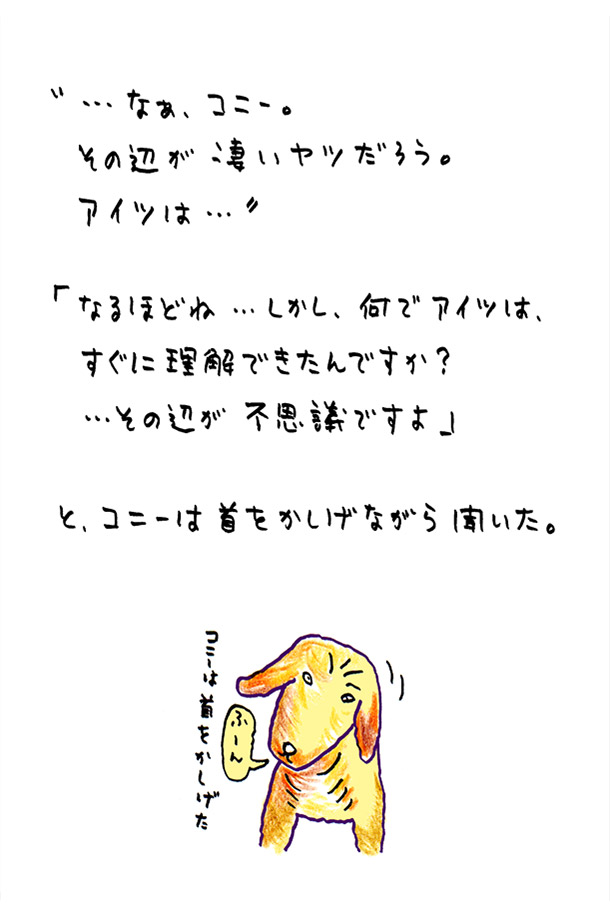 〝…なぁ、コニー。
その辺が凄いヤツだろう。
アイツは…〞
「なるほどね…しかし、何でアイツは、
すぐに理解できたんですか？
…その辺が不思議ですよ」
と、コニーは首をかしげながら聞いた。
コニーは首をかしげた
ふーん